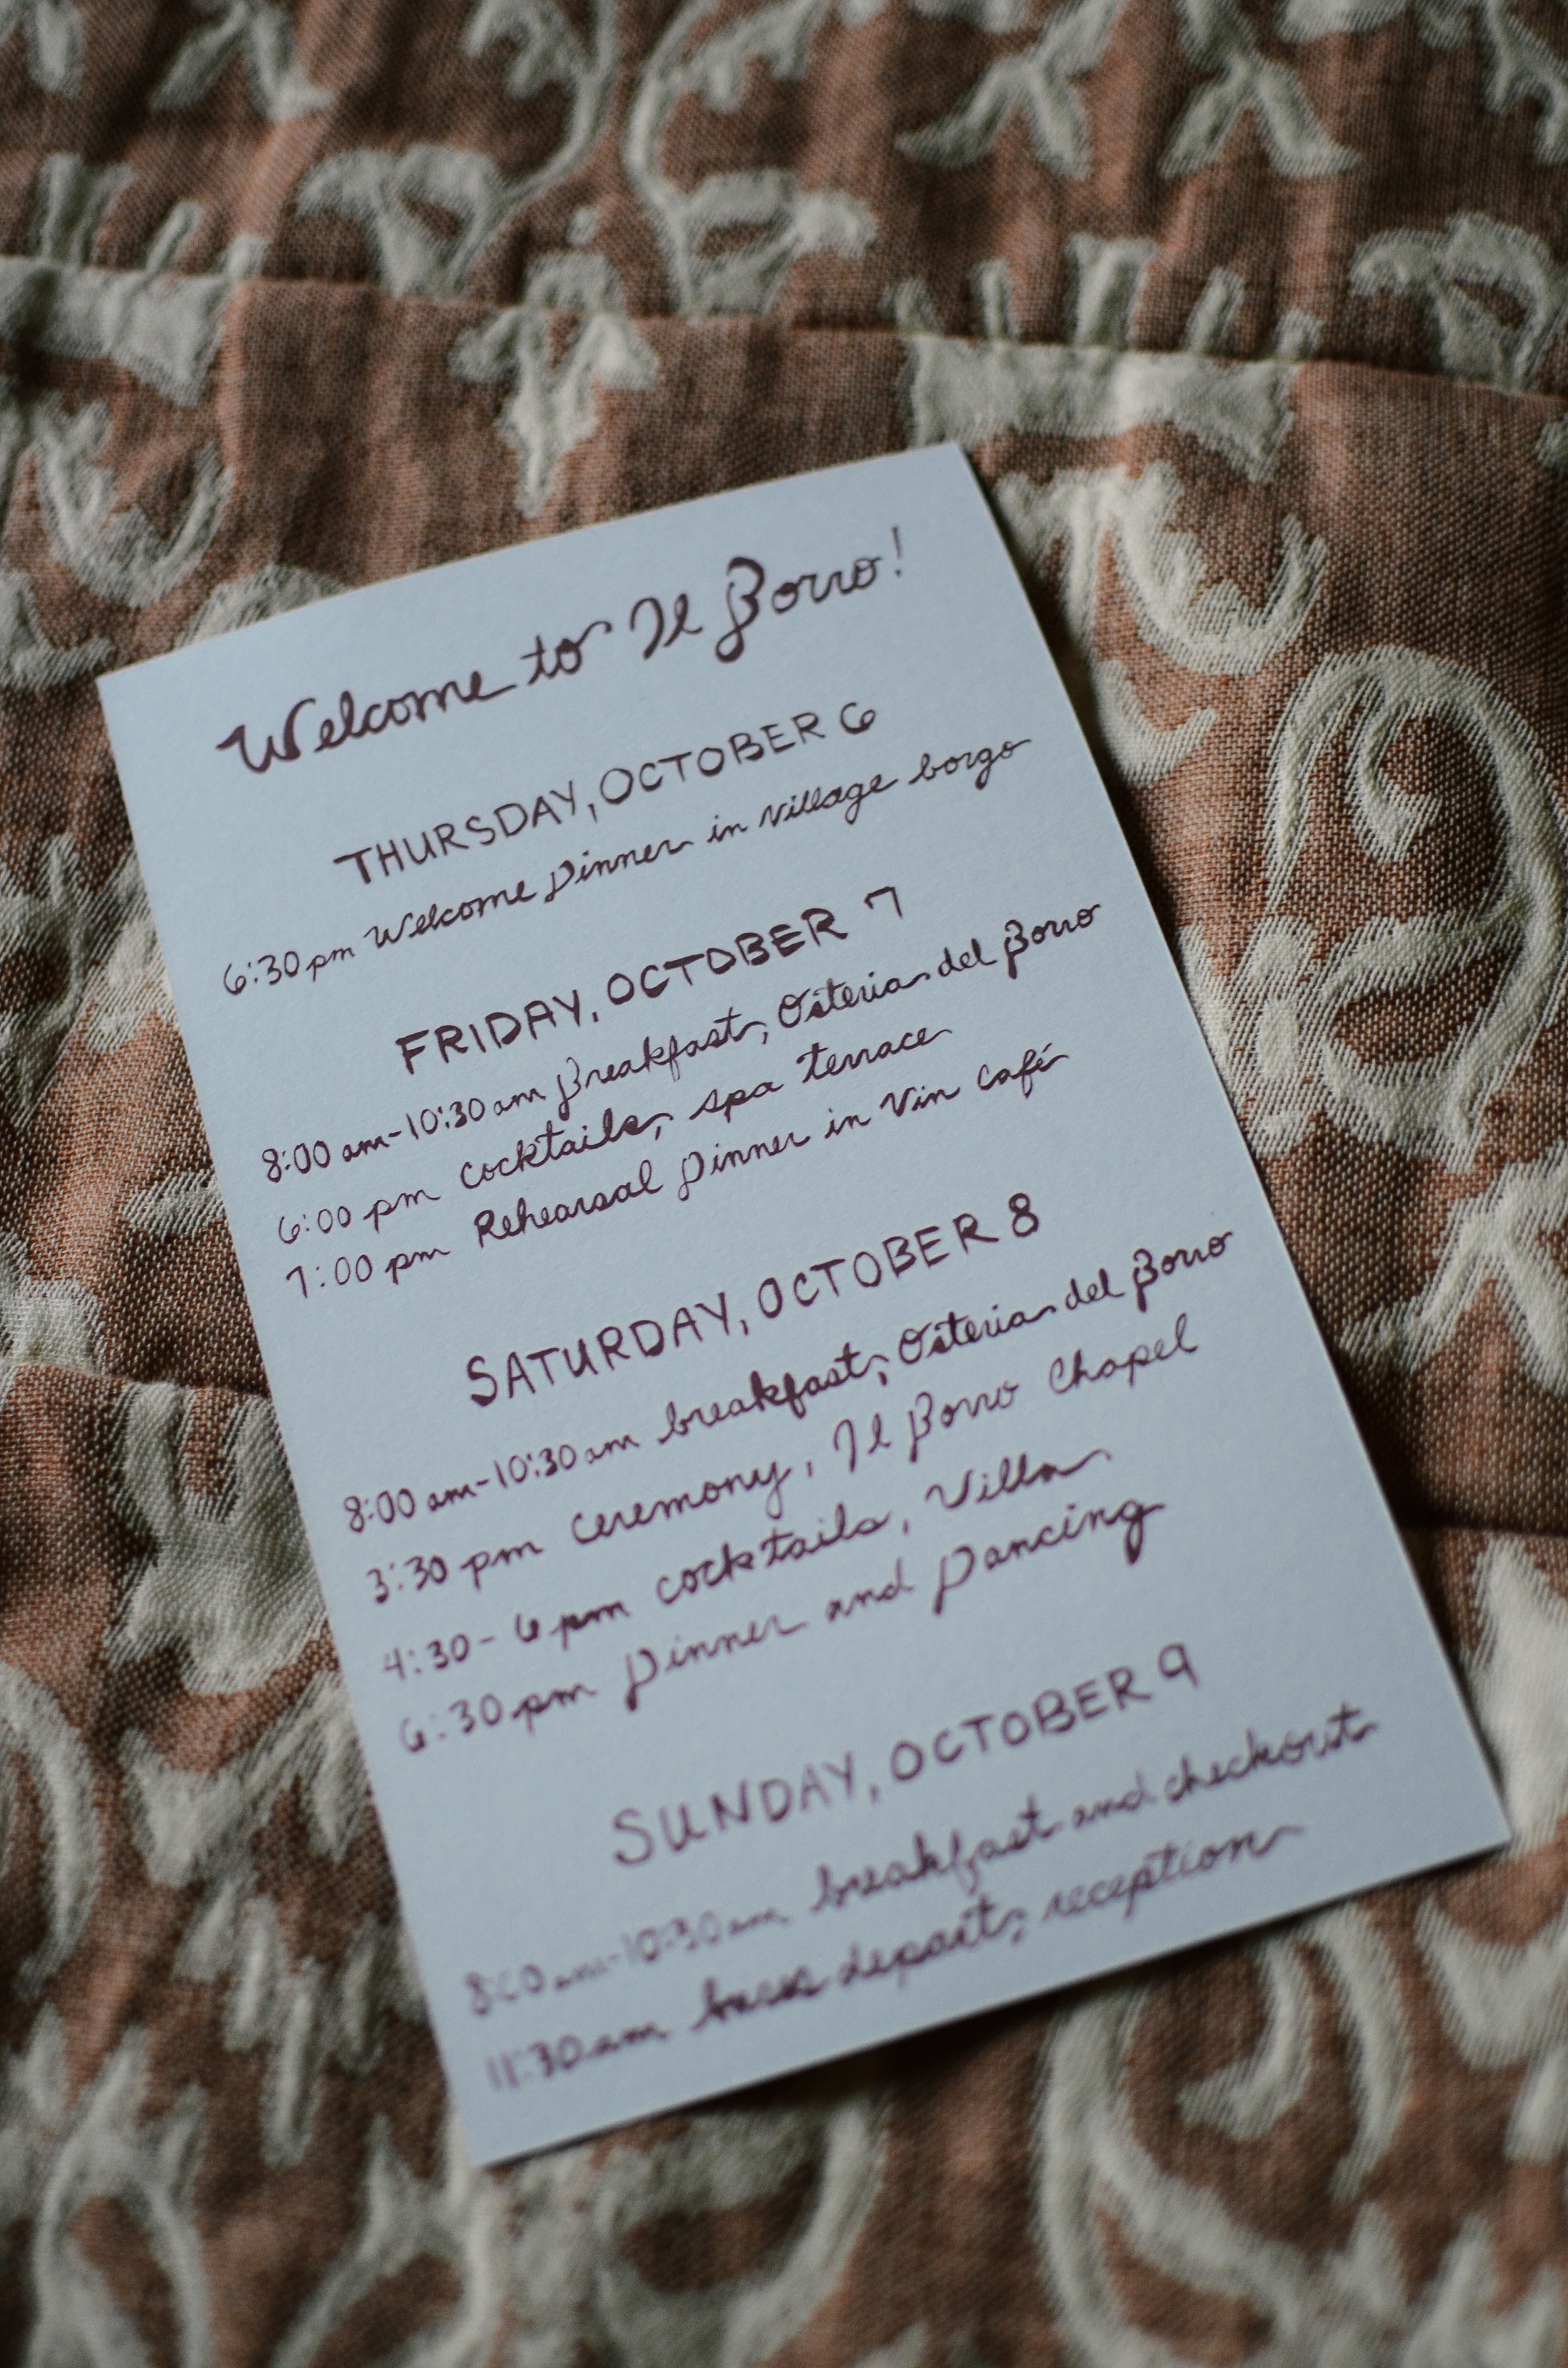 Welcome to Il Borro!
THURSDAY, OCTOBER 6
6:30pm Welcome Dinner in Village borgo
FRIDAY, OCTOBER 7
8:00 am-10:30am Breakfast, Osteria del Borro
6:00 pm Cocktails, spa terrace
7:00 pm Rehearsal Dinner in Vin Café
SATURDAY, OCTOBER 8
8:00 am-10:30am breakfast, Osteria del Borro
3:30 pm Ceremony, Il Borro Chapel
4:30-6pm cocktails, Villa
6:30pm Dinner and Dancing
SUNDAY, OCTOBER 9
8:00am-10:30am breakfast and checkout
11:30am depart, reception